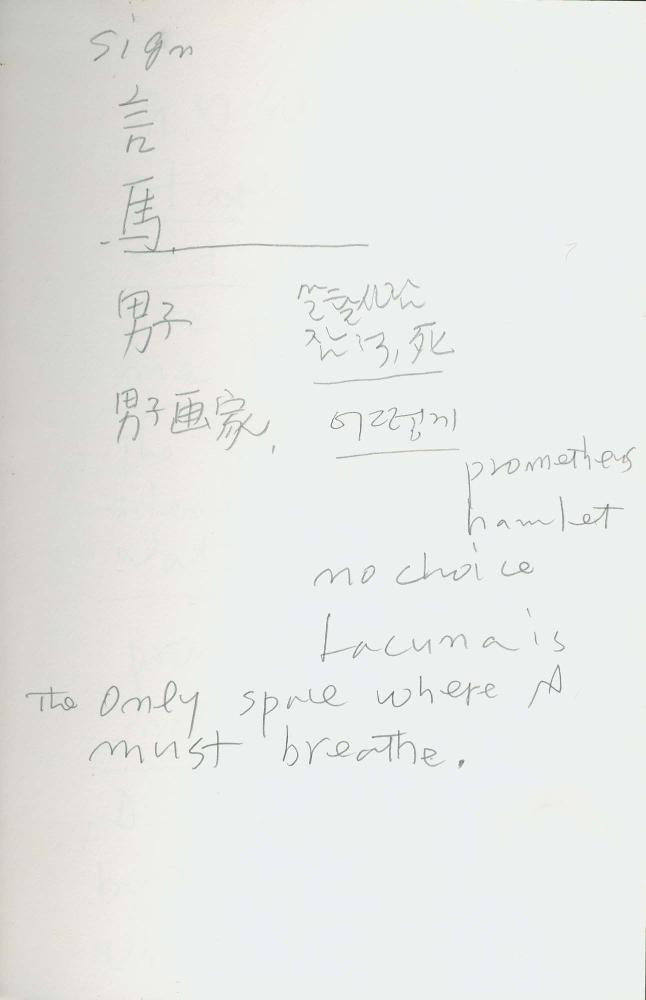 sign
言
馬
男子
死
男子画家,
어렵게
prometheus
hamlet
no choice
Lacuna is
The only space where
must breathe.